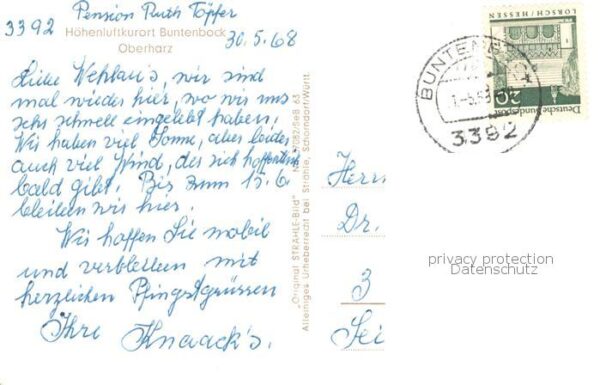 Pension Ruth Töpfer
3392
Höhenluftkurort Buntenbock
Oberharz
30.5.68
Liebe Wehlau's, wir sind
mal wieder hier, wo wir uns
sehr schnell eingelebt haben.
Wir haben viel Sonne, aber leider
auch viel Wind, der sich hoffentlich
bald gibt. Bis zum 15.6
bleiben wir hier.
Wir hoffen Sie mobil
und verbleiben mit
herzlichen Pfingstgrüssen
Ihre Knaack's.
"Original STRÄHLE-Bild"
Alleiniges Urheberrecht bei Strähle, Schorndorf/Württ.
Herrn
Dr.
3
LORSCH/HESSEN
20
Deutsche Bundespost
BUNTENBOCK
3392
privacy protection
Datenschutz